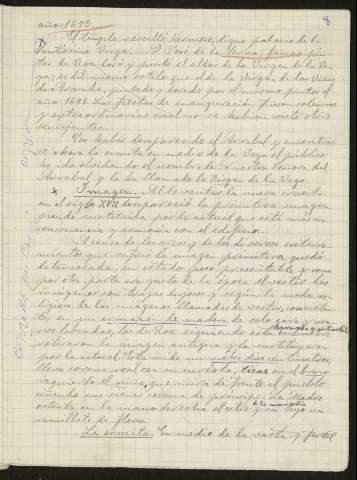 8
año 1692.
El templo resultó hermoso, digno palacio de la
Santísima Virgen. D. José de la Serna, famoso pin-
tor de Roa doró y pintó el altar de la Virgen de la Ve-
ga; es del mismo estilo que el de la Virgen de las Viñas
de Aranda, pintado y dorado por el mismo pintor el
año 1698. Las fiestas de inauguración fueron solemnes
y extraordinarias cual no se habían visto otras
semejantes.
Por haber desaparecido el Arrabal y encontrar-
se ahora la ermita en medio de la Vega el público
ha ido olvidando el nombre de Nuestra Señora del
Arrabal y la ha llamado la Virgen de la Vega.
x Imagen. Al levantar la nueva ermita
en el siglo XVII desapareció la primitiva imagen
siendo sustituida por la actual que está en
consonancia y armonía con el edificio.
A causa de los años y de los diversos enterra-
mientos que sufrió la imagen primitiva quedó
deteriorada, en estado poco presentable y como
por otra parte era gusto de la época el vestir las
imágenes con trajes lujosos y según la moda
las imágenes llamadas de vestir, consisten-
tes en un armazón de madera de solo cara y ma-
nos labradas, los de Roa siguiendo esta costumbre
retiraron la imagen antigua y la sustituyeron
por la actual. Esta mide un metro diez centímetros,
lleva corona real con aureola, tiene en el brazo
izquierdo el niño, que mira de frente al pueblo
ciñendo sus sienes corona de príncipe. La Madre
ostenta en la mano derecha el cetro y su Hijo un
ramillete de flores.
La ermita. En medio de la vasta y fértil